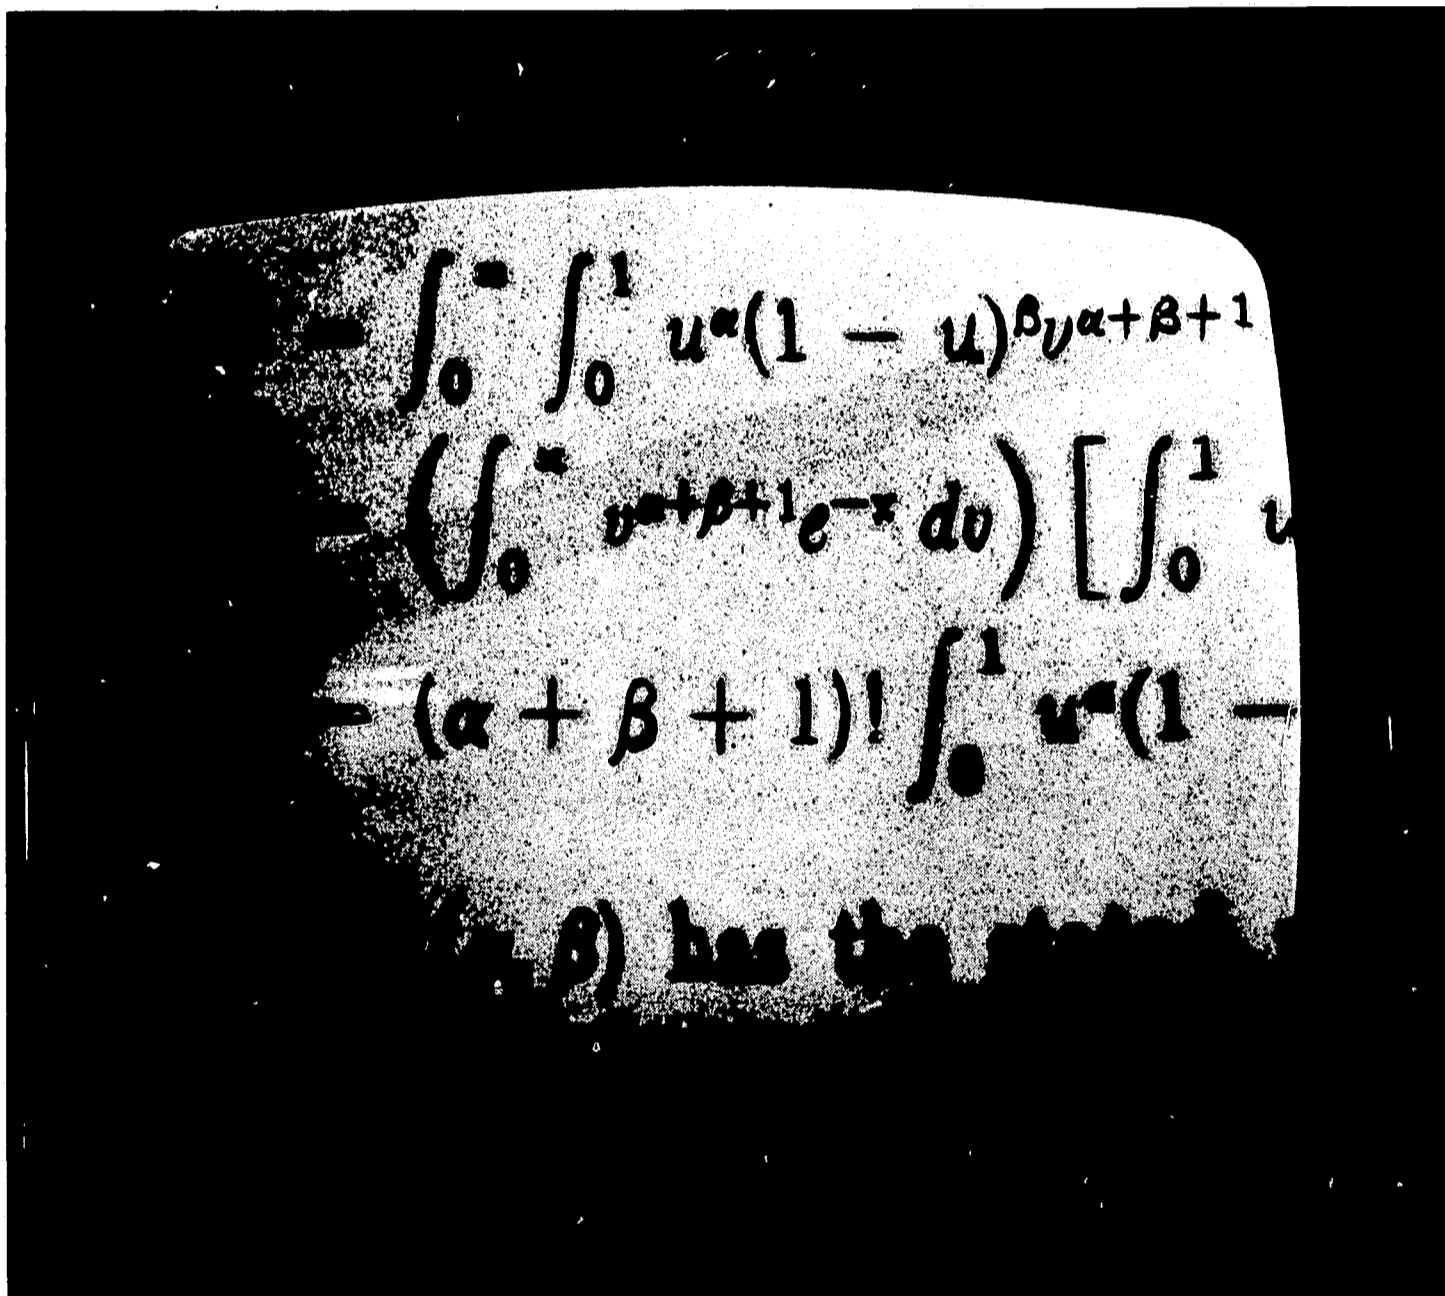 = ∫₀^∞ ∫₀¹ u^α(1 − u)^β v^(α+β+1)
= (∫₀^∞ v^(α+β+1) e^(−x) dv) [∫₀¹ u
= (α + β + 1)! ∫₀¹ u^α(1 −
β) has the